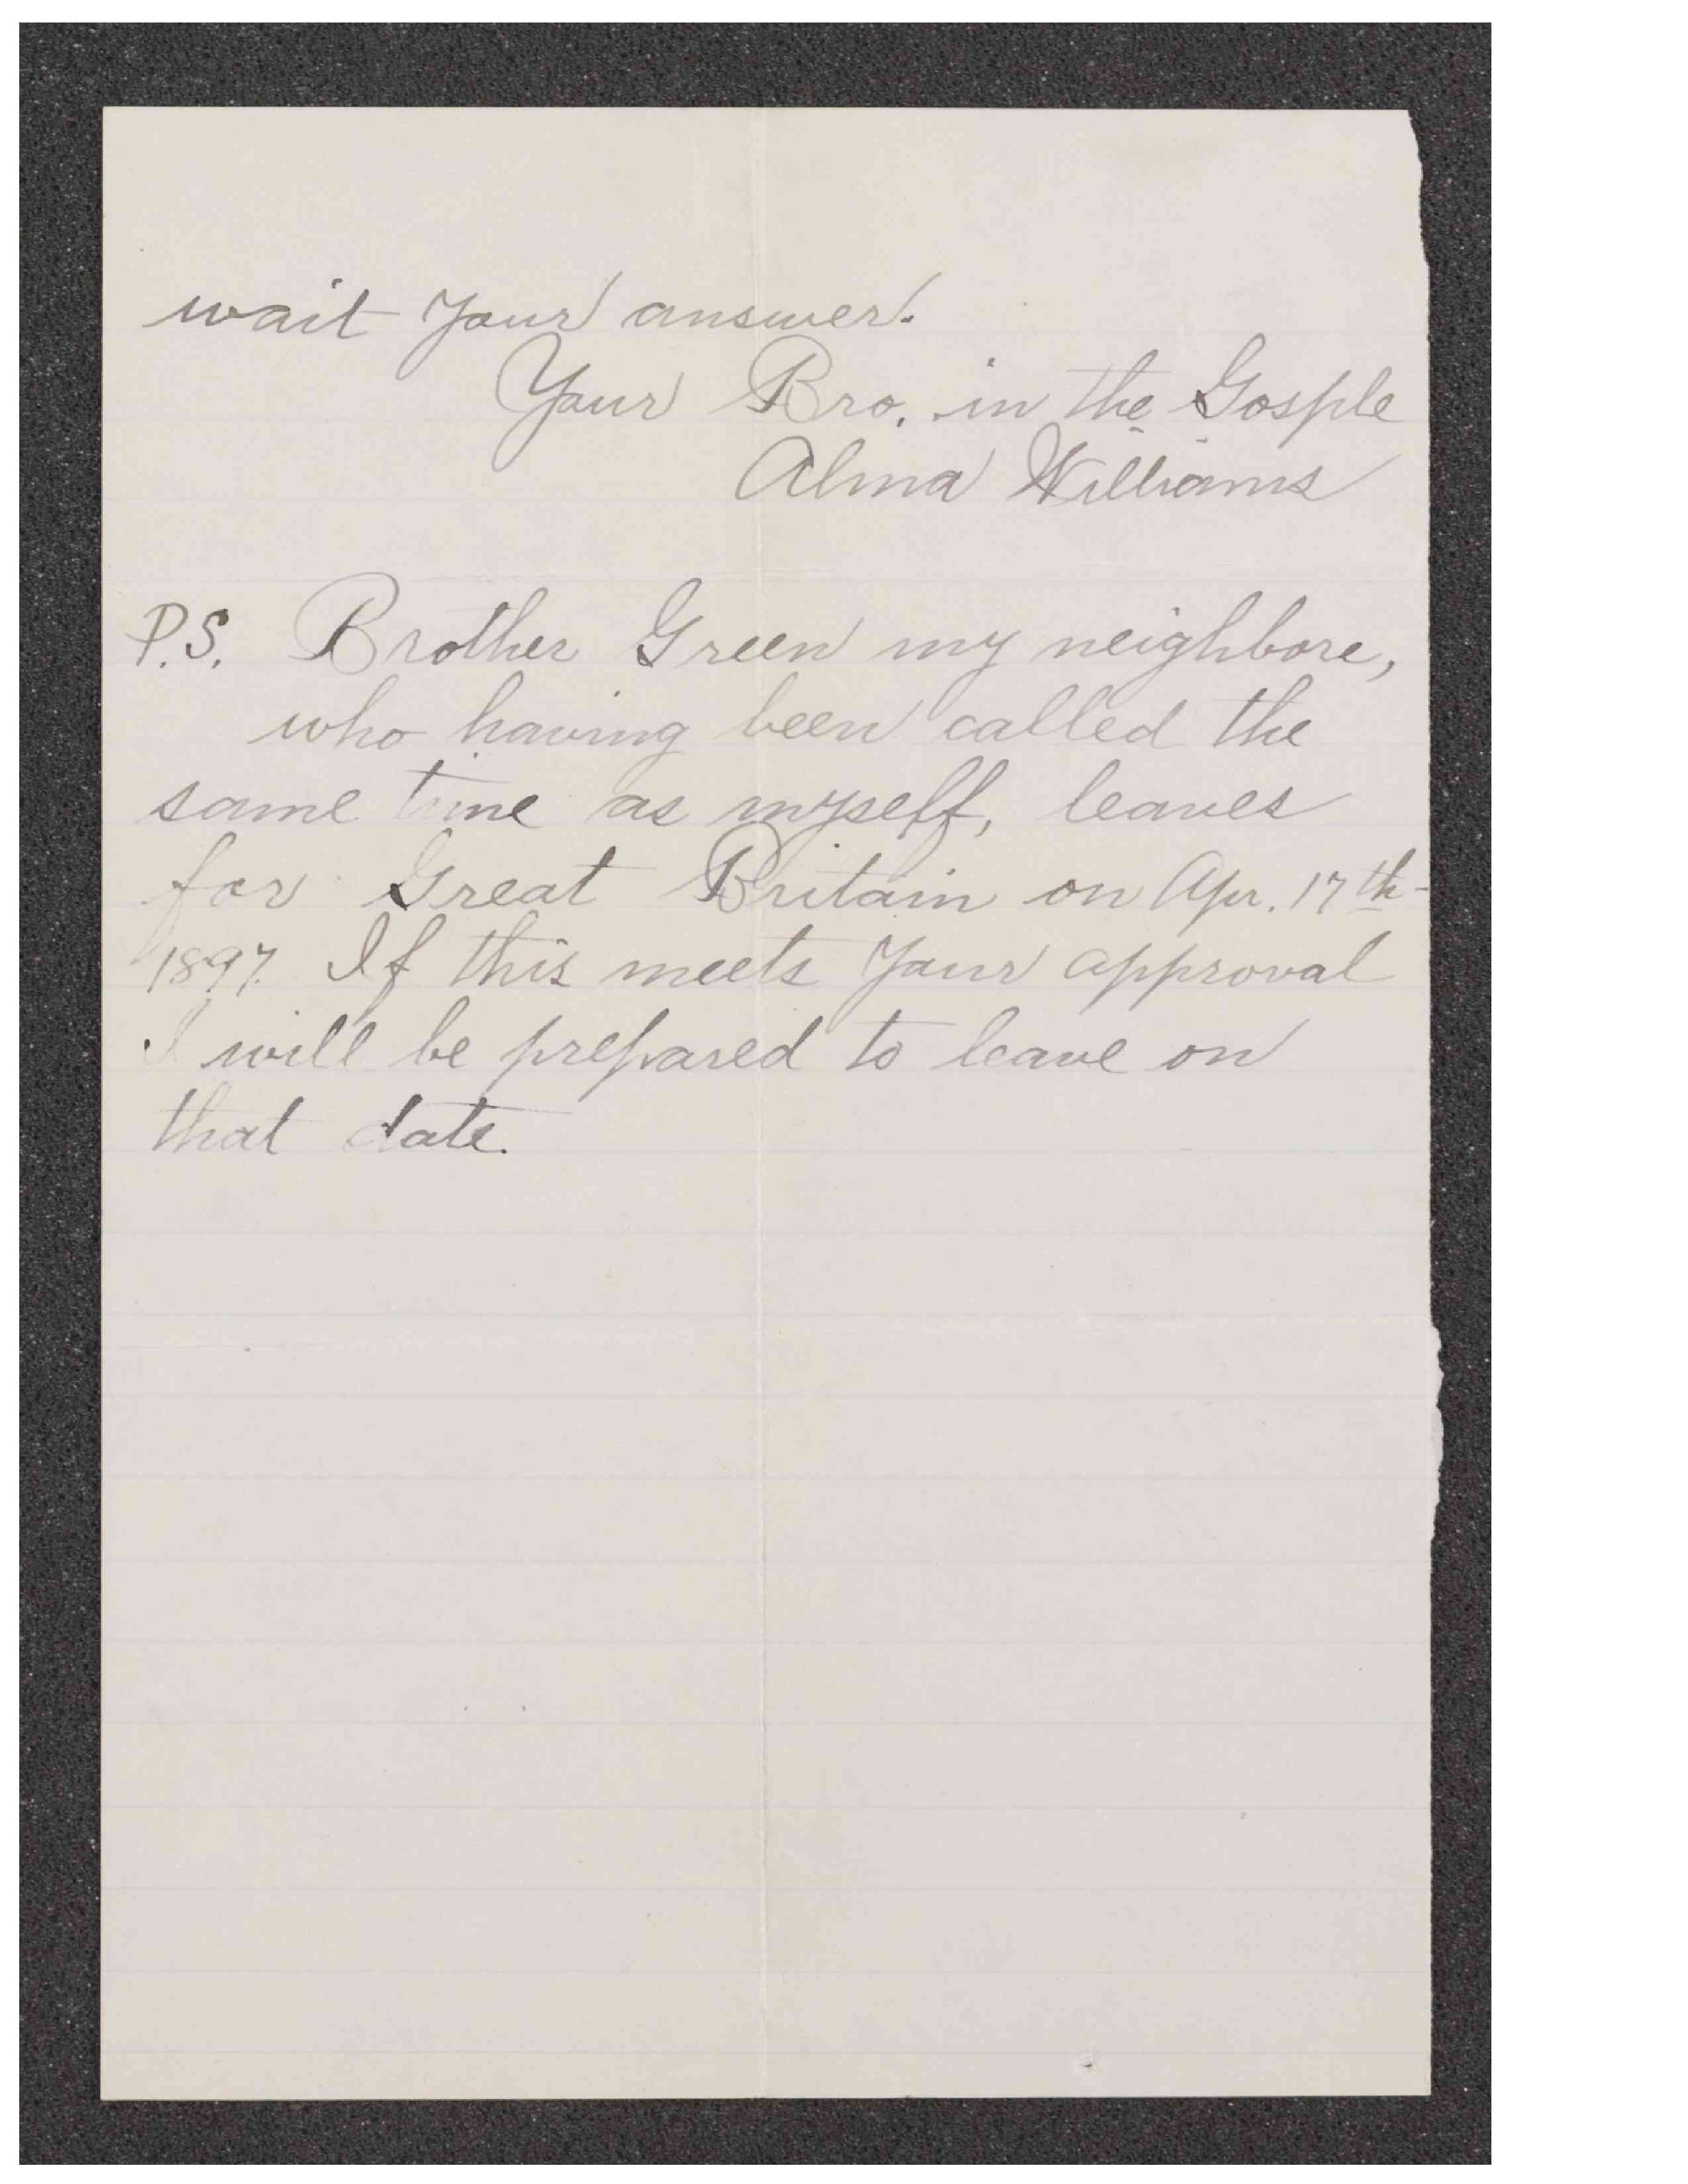 wait your answer.
Your Bro. in the Gosple
Alma Williams
P.S. Brother Green my neighbore,
who having been called the
same time as myself, leaves
for Great Britain on Apr. 17th
1897. If this meets your approval
I will be prepared to leave on
that date.